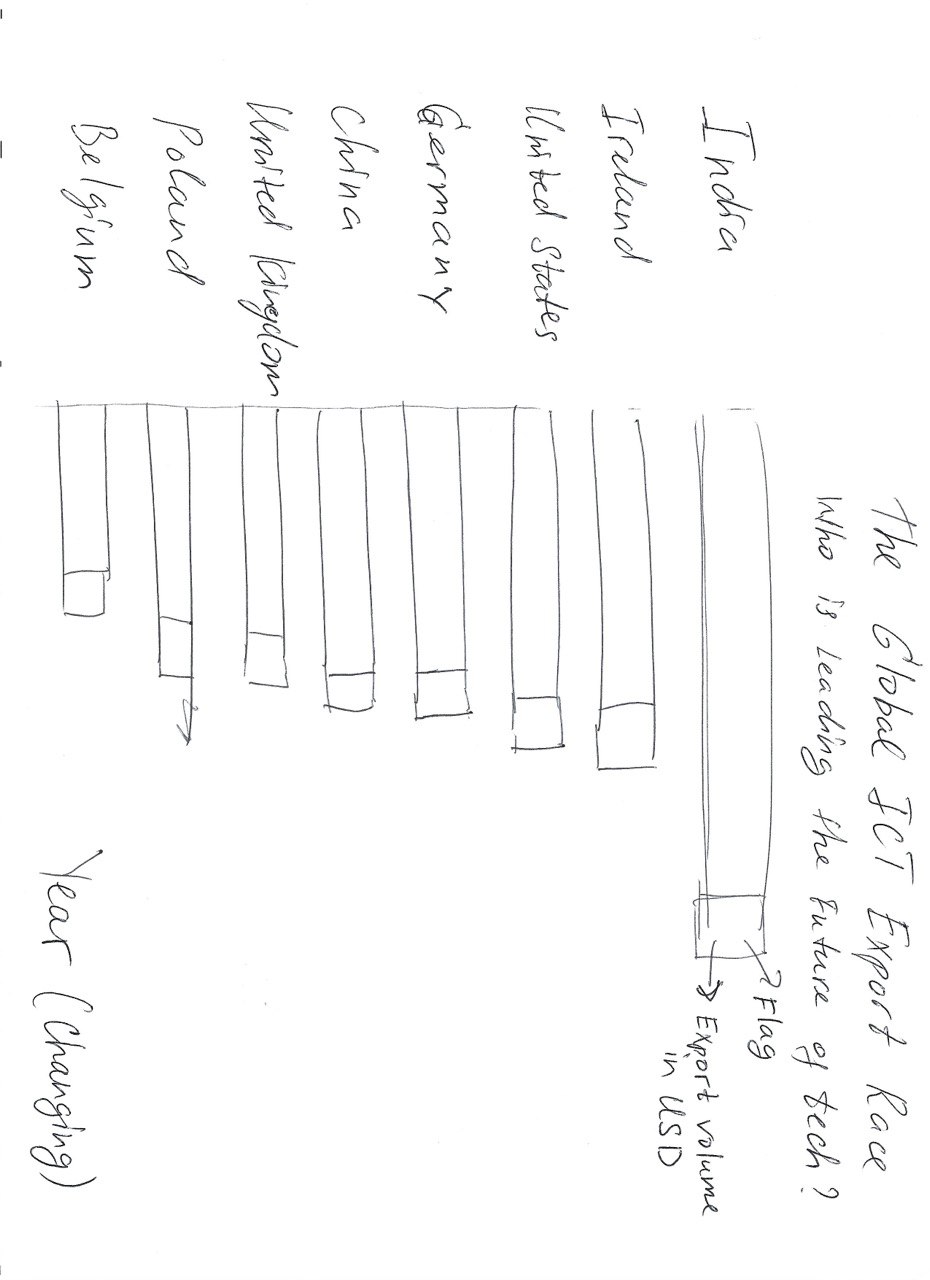 The Global ICT Export Race
Who is Leading the Future of tech?
India
Flag
Export volume
in USD
Ireland
United States
Germany
China
United Kingdom
Poland
Belgium
Year (Changing)